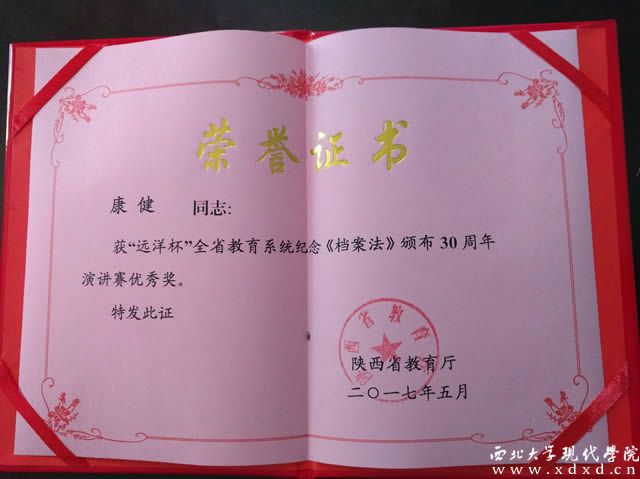 荣誉证书
康健 同志:
获“远洋杯”全省教育系统纪念《档案法》颁布30周年
演讲赛优秀奖。
特发此证
陕西省教育厅
陕西省教育厅
二〇一七年五月
西北大学现代學院
www.xdxd.cn